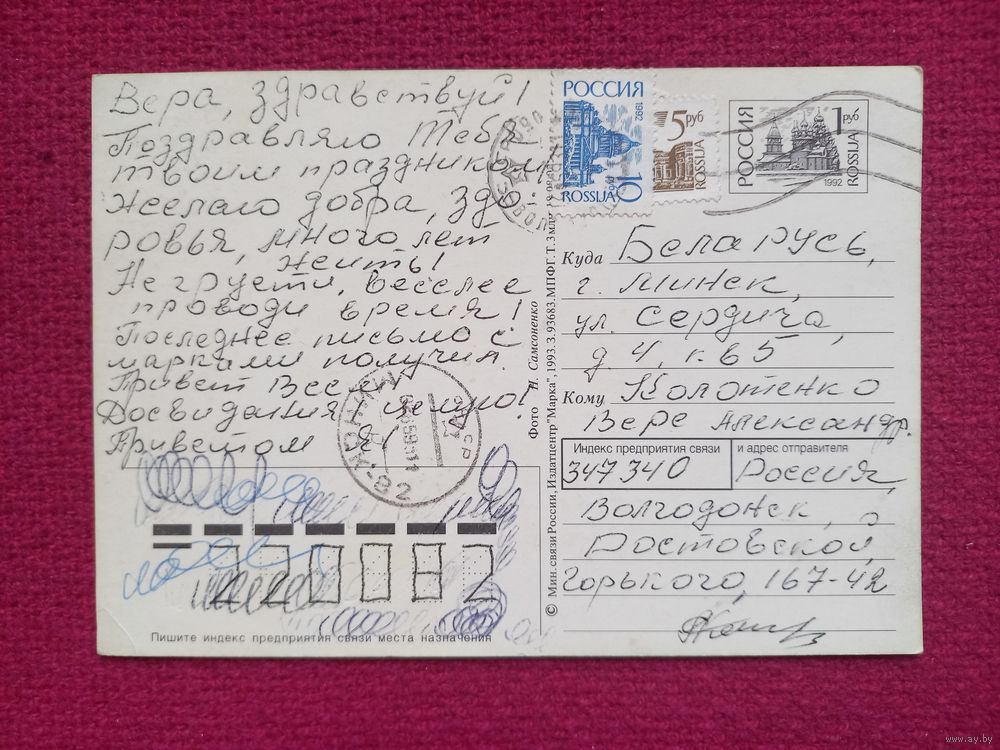 Вера, здравствуй!
Поздравляю Тебя
твоим праздником,
Желаю добра, здо
ровья, много лет
жить!
Не грусти, веселее
проводи время!
Последнее письмо с
марками получил.
Привет Всем!
Досвидания, пишу!
Приветом Я!
РОССИЯ
1992
10
ROSSIJA
5 руб
ROSSIJA
РОССИЯ
1 руб
ROSSIJA
1992
Куда Беларусь,
г. Минск,
ул. Сердича,
д 4, к 65
Кому Колотенко
Вере Александр.
Индекс предприятия связи и адрес отправителя
347340 Россия,
Волгодонск,
Ростовской,
Горького, 167-42
Фото Н. Самсоненко
© Мин. связи России, Издатцентр "Марка", 1993. З. 93683. МПФГ. Т. 3 млн
220082
Пишите индекс предприятия связи места назначения
МІНСК-82
www.ay.by